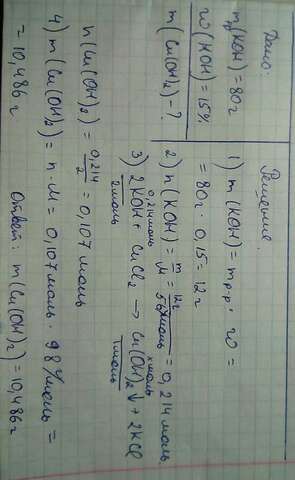 Дано:
mр(KOH) = 80г
ω(KOH) = 15%
m(Cu(OH)₂) - ?
Решение
1) m(KOH) = mр-р · ω =
= 80г · 0,15 = 12г
2) n(KOH) = m/M = 12г / 56г/моль = 0,214 моль
0,214моль x моль
3) 2KOH + CuCl₂ → Cu(OH)₂↓ + 2KCl
2моль 1моль
n(Cu(OH)₂) = 0,214/2 = 0,107 моль
4) m(Cu(OH)₂) = n · M = 0,107моль · 98г/моль =
= 10,486г
Ответ: m(Cu(OH)₂) = 10,486г